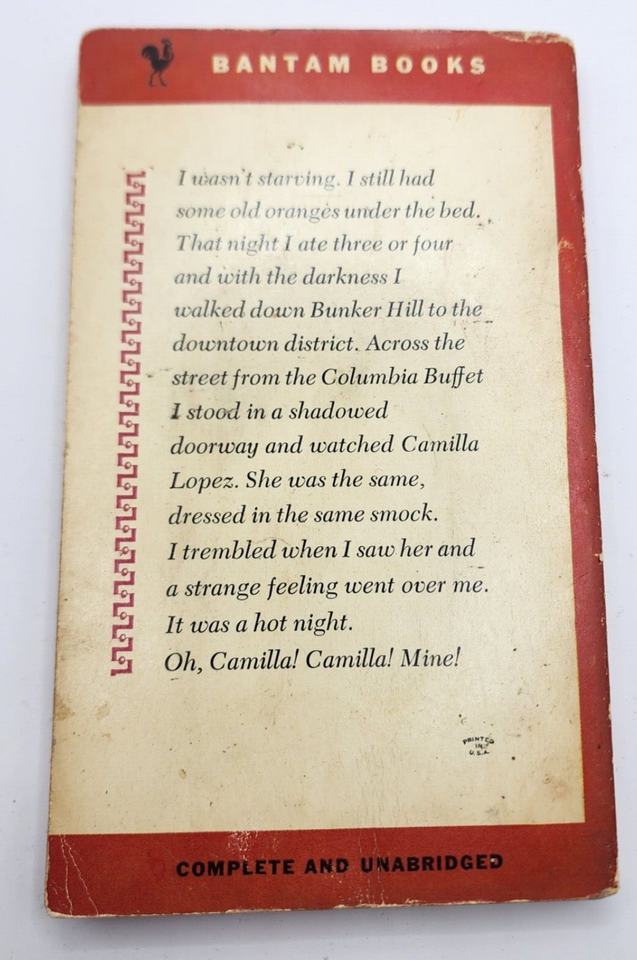 BANTAM BOOKS
I wasn't starving. I still had
some old oranges under the bed.
That night I ate three or four
and with the darkness I
walked down Bunker Hill to the
downtown district. Across the
street from the Columbia Buffet
I stood in a shadowed
doorway and watched Camilla
Lopez. She was the same,
dressed in the same smock.
I trembled when I saw her and
a strange feeling went over me.
It was a hot night.
Oh, Camilla! Camilla! Mine!
PRINTED
IN
U.S.A.
COMPLETE AND UNABRIDGED